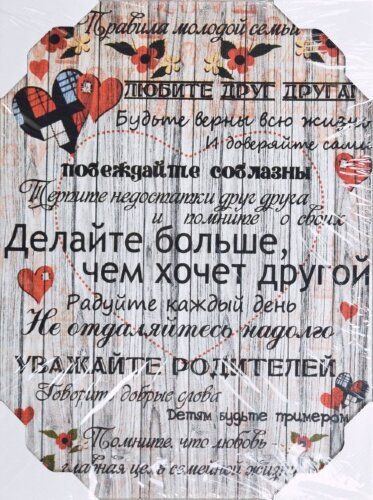 Правила молодой семьи
ЛЮБИТЕ ДРУГ ДРУГА!
Будьте верны всю жизнь
И доверяйте сами
побеждайте соблазны
Терпите недостатки друг друга
и помните о своих
Делайте больше,
чем хочет другой
Радуйте каждый день
Не отдаляйтесь надолго
УВАЖАЙТЕ РОДИТЕЛЕЙ
Говорите добрые слова
Детям будьте примером
Помните, что любовь -
главная цель семейной жизни